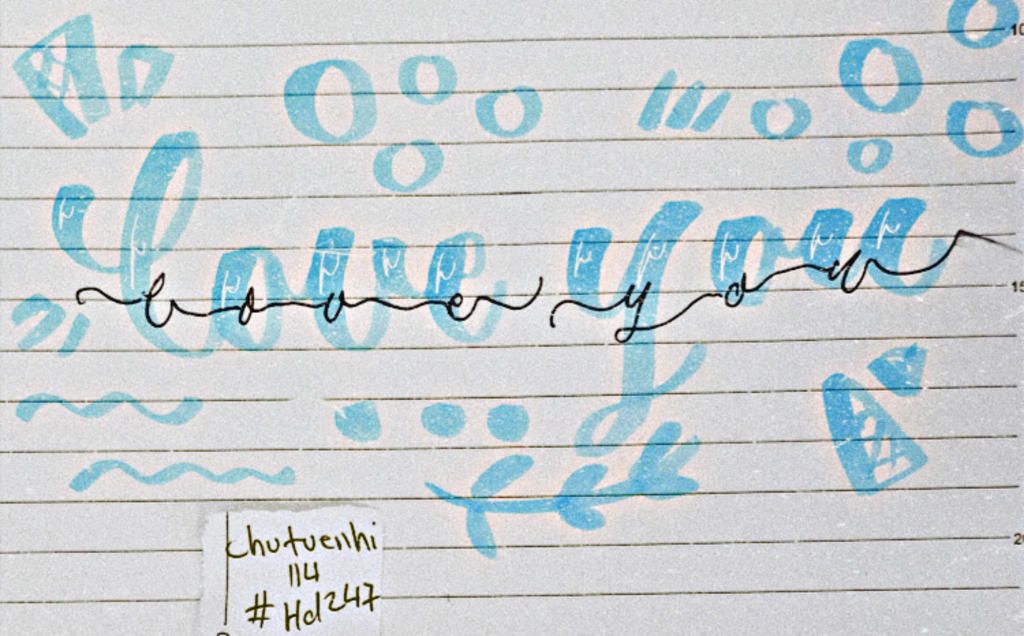 10
love you
love you
15
chutuenhi
114
#Hd247
20